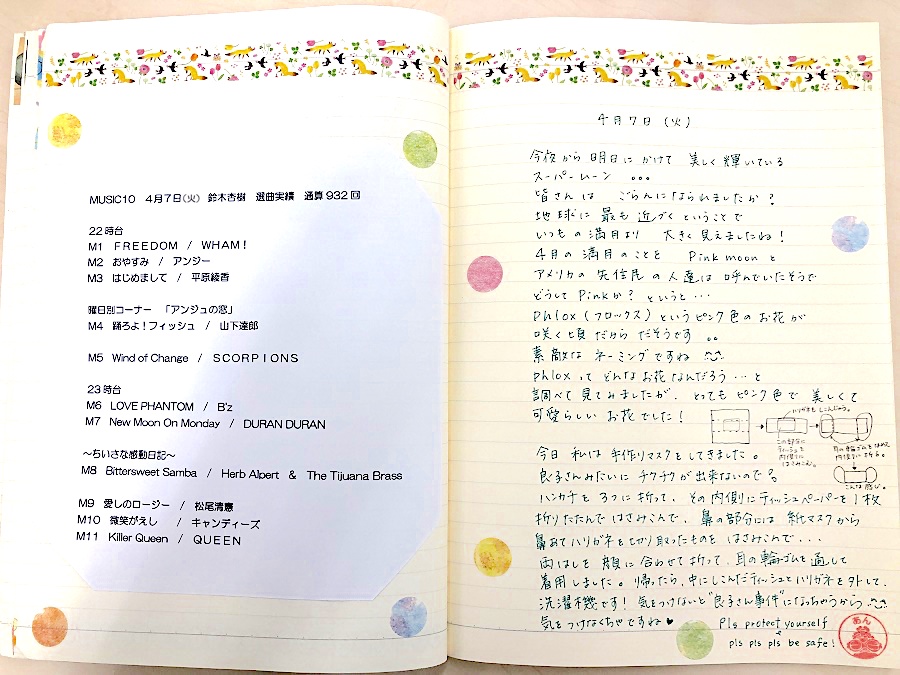 MUSIC10 4月7日(火) 鈴木杏樹 選曲実績 通算932回
22時台
M1 FREEDOM / WHAM!
M2 おやすみ / アンジー
M3 はじめまして / 平原綾香
曜日別コーナー 「アンジュの恋」
M4 踊ろよ!フィッシュ / 山下達郎
M5 Wind of Change / SCORPIONS
23時台
M6 LOVE PHANTOM / B'z
M7 New Moon On Monday / DURAN DURAN
~ちいさな感動日記~
M8 Bittersweet Samba / Herb Alpert & The Tijuana Brass
M9 愛しのロージー / 松尾清憲
M10 微笑がえし / キャンディーズ
M11 Killer Queen / QUEEN
4月7日(火)
今夜から明日にかけて 美しく輝いている
スーパームーン 。。。
皆さんは ごらんになられましたか?
地球に最も近づくということで
いつもの満月より 大きく見えましたね!
4月の満月のことを Pink moonと
アメリカの先住民の人達は呼んでいたそうで
どうしてPinkか?というと…
Phlox(フロックス)というピンク色のお花が
咲く頃だからだそうです 。。
素敵なネーミングですね
Phloxってどんなお花なんだろう…と
調べて見てみましたが、とってもピンク色で美しくて
可愛らしいお花でした!
ハリガネもしこんじゃう。
この部分に
ティッシュを
内側に
はさみこむ。
耳の輪ゴムをはめて
内側に折る。
こんな感じ。
今日私は手作りマスクをしてきました。
良子さんみたいにチクチクが出来ないので。
ハンカチを3つに折って、その内側にティッシュペーパーを1枚
折りたたんではさみこんで、鼻の部分には紙マスクから
鼻あてハリガネを切り取ったものをはさみこんで…
両はしを顔に合わせて折って、耳の輪ゴムを通して
着用しました。帰ったら、中にしこんだティッシュとハリガネを外して、
洗濯機です!気をつけないと"良子さん事件"になっちゃうから
気をつけなくちゃですね♥ Pls protect yourself
pls pls pls be safe!
あん